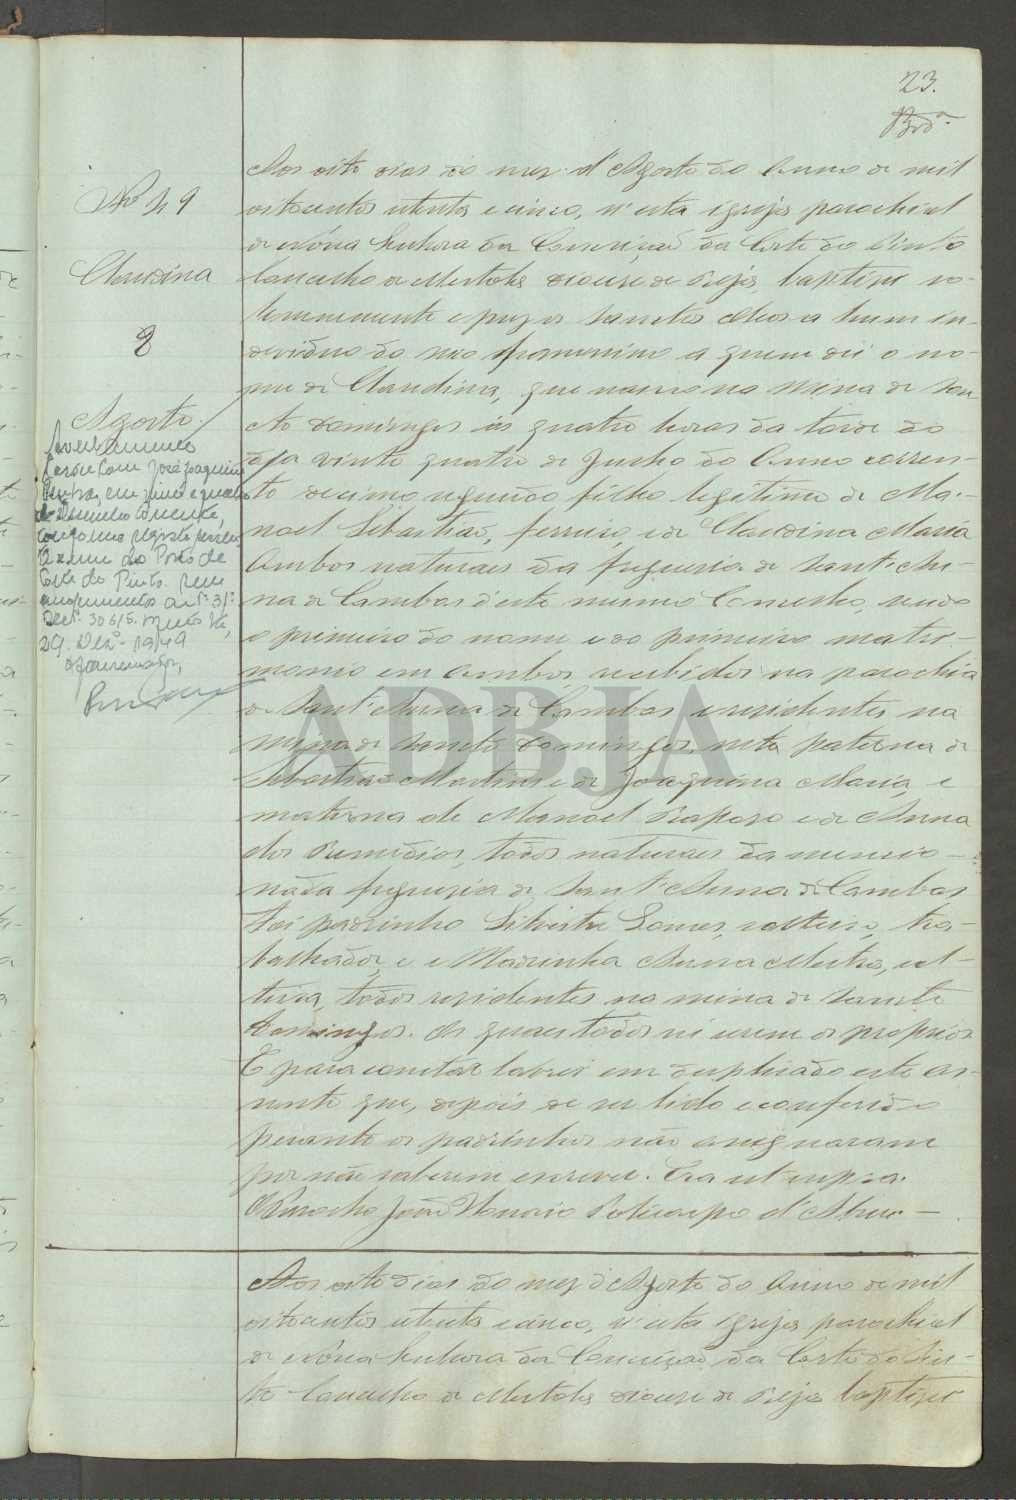 23.
Nº 49
Claudina
8
Agosto
Aos oito dias do mez d'Agosto do Anno de mil
oitocentos oitenta e cinco, n'esta igreja parochial
de Nossa Senhora da Conceição da Corte do Pinto
Concelho de Mertola diocese de Beja, baptizei so-
lemnemente e puz os sanctos oleos a hum in-
dividuo do sexo femenino a quem dei o no-
me de Claudina, que nasceo na Mina de San-
cto Domingos ás quatro horas da tarde do
dia vinte quatro de Junho do Anno corren-
te decimo segundo filho legitimo de Ma-
noel Sebastião, ferreiro, e de Claudina Maria
Ambos naturaes da freguesia de Sant'An-
na de Cambas d'este mesmo Concelho, sendo
o primeiro do nome e do primeiro matri-
monio em ambos, recebidos na parochia
de Sant'Anna de Cambas e residentes na
mina de Sancto Domingos, neta paterna de
Sebastião Martins e de Joaquina Maria, e
materna de Manoel Raposo e de Anna
dos Remedios, todos naturaes da mencio-
nada freguesia de Sant'Anna de Cambas
Foi padrinho Silvestre Gomes, solteiro, tra-
balhador, e Madrinha Anna Mestra, sol-
teira, todos residentes na mina de Sancto
Domingos. Os quaes todos sei serem os proprios
E para constar lavrei em duplicado este as-
sento que, depois de ser lido e conferido
perante os padrinhos não assignaram
por não saberem escrever. Era ut supra.
O Parocho João Honorio Policarpo d'Abreu
casou com José Joaquim
em vinte e quatro
de Dezembro corrente,
no Posto de
Corte do Pinto.
29. Dezº. 1949
ADBJA
Aos oito dias do mez d'Agosto do Anno de mil
oitocentos oitenta e cinco, n'esta igreja parochial
de Nossa Senhora da Conceição da Corte do Pin-
to Concelho de Mertola diocese de Beja baptizei